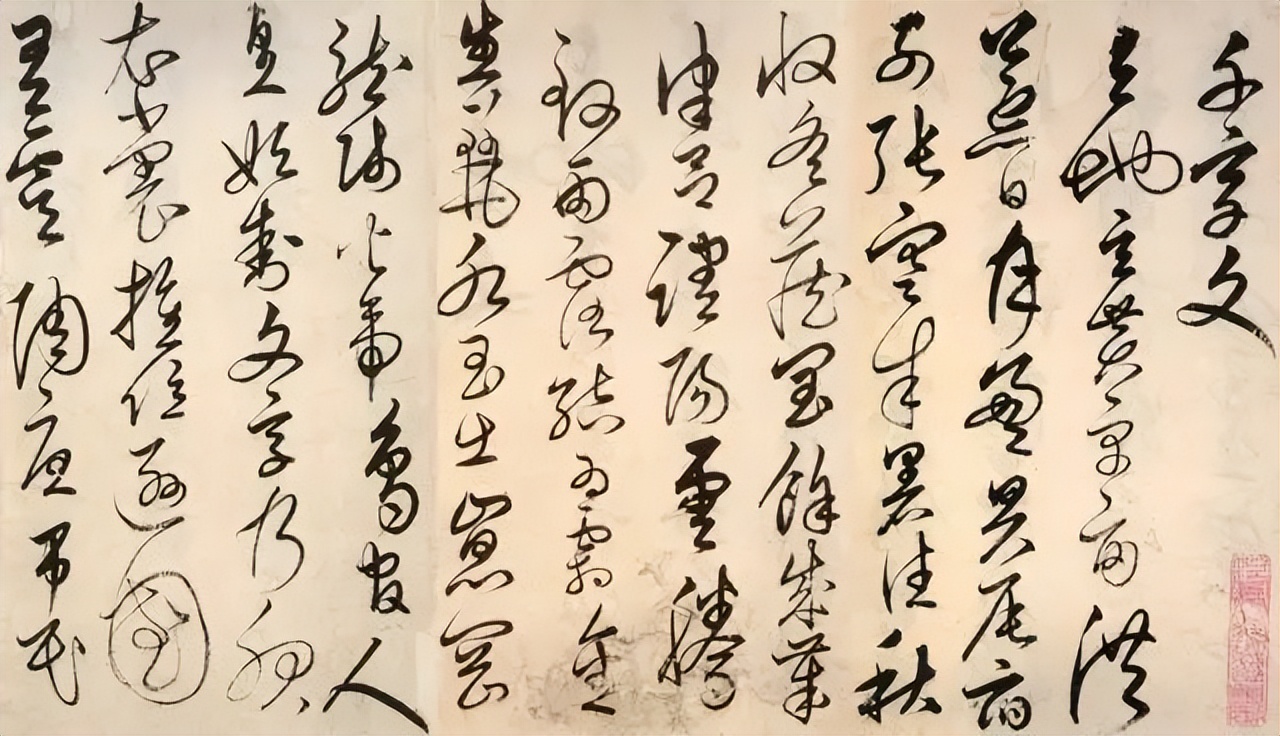 千字文
天地玄黃宇宙洪
荒日月盈昃辰宿
列張寒來暑往秋
收冬藏閏餘成歲
律呂調陽雲騰
致雨露結為霜金
生麗水玉出崑岡
龍師火帝鳥官人
皇始制文字乃服
衣裳推位遜國
有虞陶唐弔民